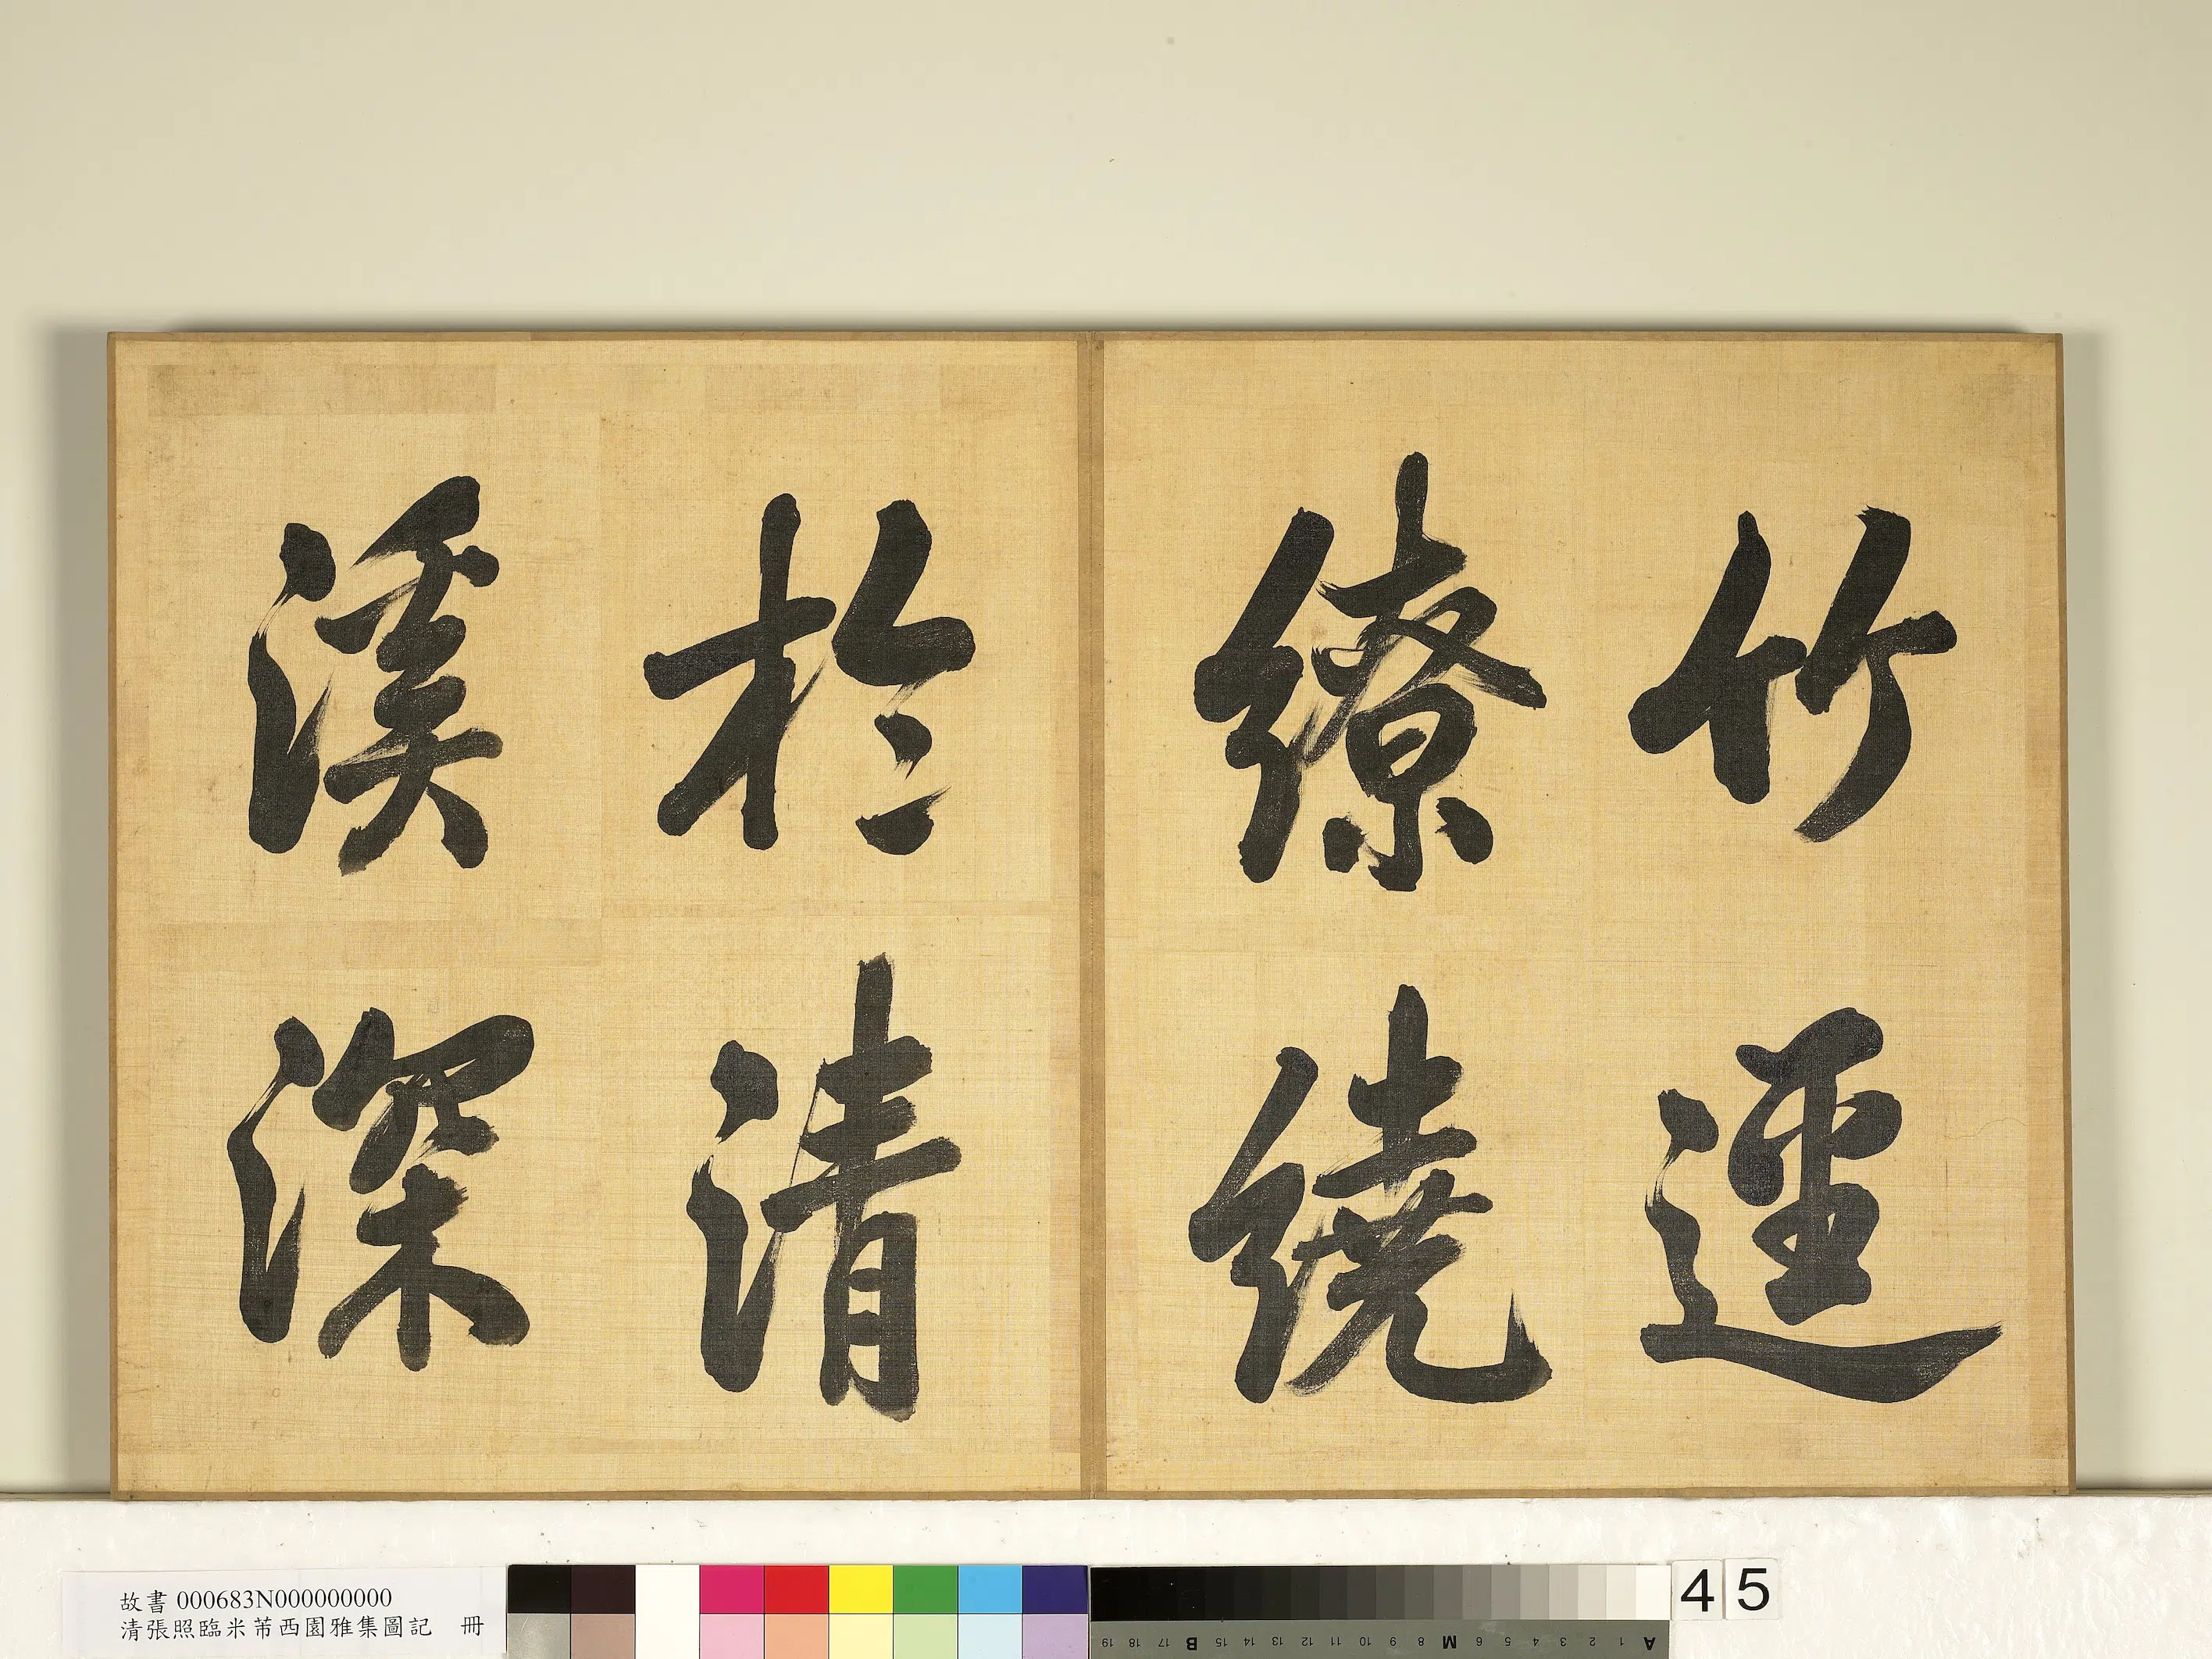 竹逕
繚繞
於清
溪深
故書 000683N000000000
清張照臨米芾西園雅集圖記 冊
45
19 18 17 B 15 14 13 12 11 10 9 8 M 6 5 4 3 2 1 A